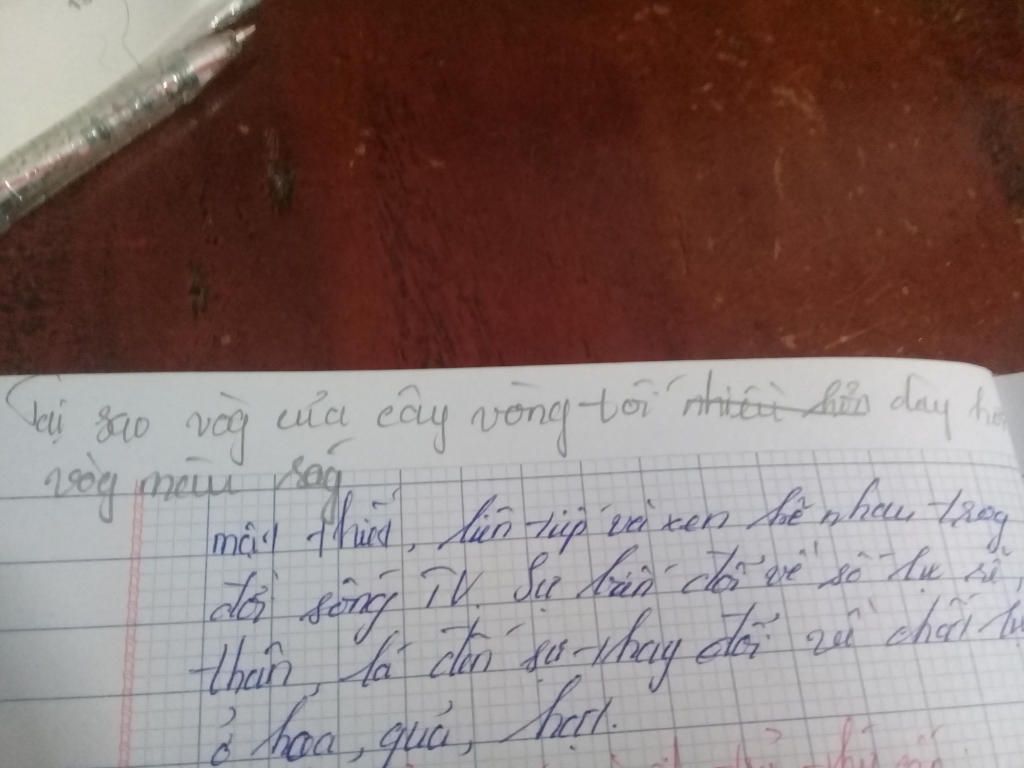 Tại sao vòg của cây vòng tối nhiều hơn dày hơn
vòg màu ság
mật thiết, liên tiếp và xen kẽ nhau trog
đời sống TV. Sự biến đổi về số lự rễ,
thân, lá dẫn sự thay đổi về chất lự
ở hoa, quả, hạt.